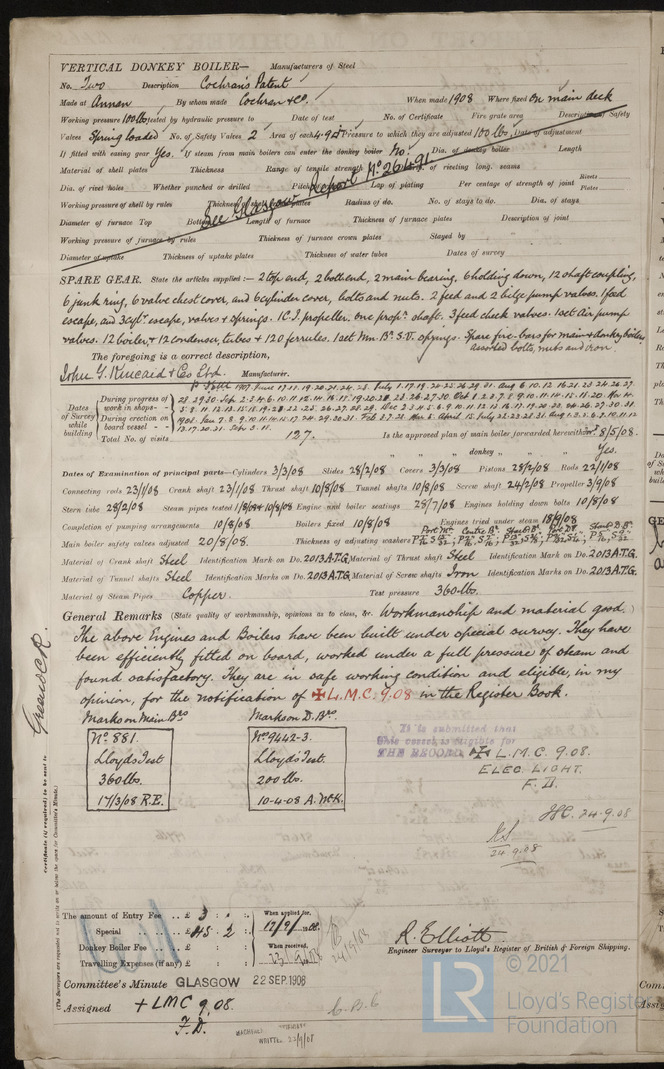 VERTICAL DONKEY BOILER— Manufacturers of Steel
No. Two Description Cochran's Patent
Made at Annan By whom made Cochran & Co. When made 1908 Where fixed On main deck
Working pressure 100 lbs tested by hydraulic pressure to Date of test No. of Certificate Fire grate area Description of Safety
Valves Spring loaded No. of Safety Valves 2 Area of each 4.9 Pressure to which they are adjusted 100 lbs. Date of adjustment
If fitted with easing gear Yes. If steam from main boilers can enter the donkey boiler No. Dia. of donkey boiler Length
Material of shell plates Thickness Range of tensile strength of riveting long. seams
Dia. of rivet holes Whether punched or drilled Pitch Lap of plating Per centage of strength of joint Rivets Plates
See Glasgow Report No. 26491
Working pressure of shell by rules Thickness of shell plates Radius of do. No. of stays to do. Dia. of stays
Diameter of furnace Top Bottom Length of furnace Thickness of furnace plates Description of joint
Working pressure of furnace by rules Thickness of furnace crown plates Stayed by
Diameter of uptake Thickness of uptake plates Thickness of water tubes Dates of survey
SPARE GEAR. State the articles supplied:— 2 top end, 2 bott end, 2 main bearing, 6 holding down, 12 shaft coupling,
6 junk ring, 6 valve chest cover, and 6 cylinder cover, bolts and nuts. 2 feed and 2 bilge pump valves. 1 feed
escape, and 3 cylr escape, valves & springs. 1 C.I. propeller. one propr shaft. 3 feed check valves. 1 set Air pump
valves. 12 boiler, & 12 condenser, tubes & 120 ferrules. 1 set Mn. Br. S.V. springs. Spare fire-bars for main & donkey boilers,
assorted bolts, nuts and iron.
The foregoing is a correct description,
John G. Kincaid & Co Ltd. Manufacturer.
Dates of Survey while building
During progress of work in shops - -
During erection on board vessel - -
Total No. of visits 127. Is the approved plan of main boiler forwarded herewith 8/5/08.
" " " donkey " " " Yes.
Dates of Examination of principal parts—Cylinders 3/3/08 Slides 28/2/08 Covers 3/3/08 Pistons 28/2/08 Rods 22/1/08
Connecting rods 23/1/08 Crank shaft 23/1/08 Thrust shaft 10/8/08 Tunnel shafts 10/8/08 Screw shaft 24/2/08 Propeller 3/9/08
Stern tube 28/2/08 Steam pipes tested 10/8/08 Engine and boiler seatings 28/7/08 Engines holding down bolts 10/8/08
Completion of pumping arrangements 10/8/08 Boilers fixed 10/8/08 Engines tried under steam 18/9/08
Main boiler safety valves adjusted 20/8/08. Thickness of adjusting washers
Material of Crank shaft Steel Identification Mark on Do. 2013 A.T.G. Material of Thrust shaft Steel Identification Mark on Do. 2013 A.T.G.
Material of Tunnel shafts Steel Identification Marks on Do. 2013 A.T.G. Material of Screw shafts Iron Identification Marks on Do. 2013 A.T.G.
Material of Steam Pipes Copper. Test pressure 360 lbs.
General Remarks (State quality of workmanship, opinions as to class, &c. Workmanship and material good. )
The above Engines and Boilers have been built under special survey. They have
been efficiently fitted on board, worked under a full pressure of steam and
found satisfactory. They are in safe working condition and eligible, in my
opinion, for the notification of ✠ L.M.C. 9.08 in the Register Book.
Marks on Main Brs Marks on D. Brs
No. 881.
Lloyds Test
360 lbs.
17/3/08 R.E.
No. 9442-3.
Lloyds Test.
200 lbs.
10-4-08 A. McK.
It is submitted that
this vessel is eligible for
THE RECORD ✠ L.M.C. 9.08.
ELEC. LIGHT.
F.D.
24.9.08
24.9.08
Greenock.
Certificate (if required) to be sent to
(The Surveyors are requested not to write on or below the space for Committee's Minute.)
The amount of Entry Fee .. £ 3 : - : When applied for,
Special .. .. £ 45 : 2 : 17/9/ 1908
Donkey Boiler Fee .. £ : : When received,
Travelling Expenses (if any) £ : :
R. Elliott.
Engineer Surveyor to Lloyd's Register of British & Foreign Shipping.
Committee's Minute GLASGOW 22 SEP. 1908
Assigned + LMC 9.08.
F.D.
WRITTEN 22/9/08
LR
© 2021
Lloyd's Register
Foundation